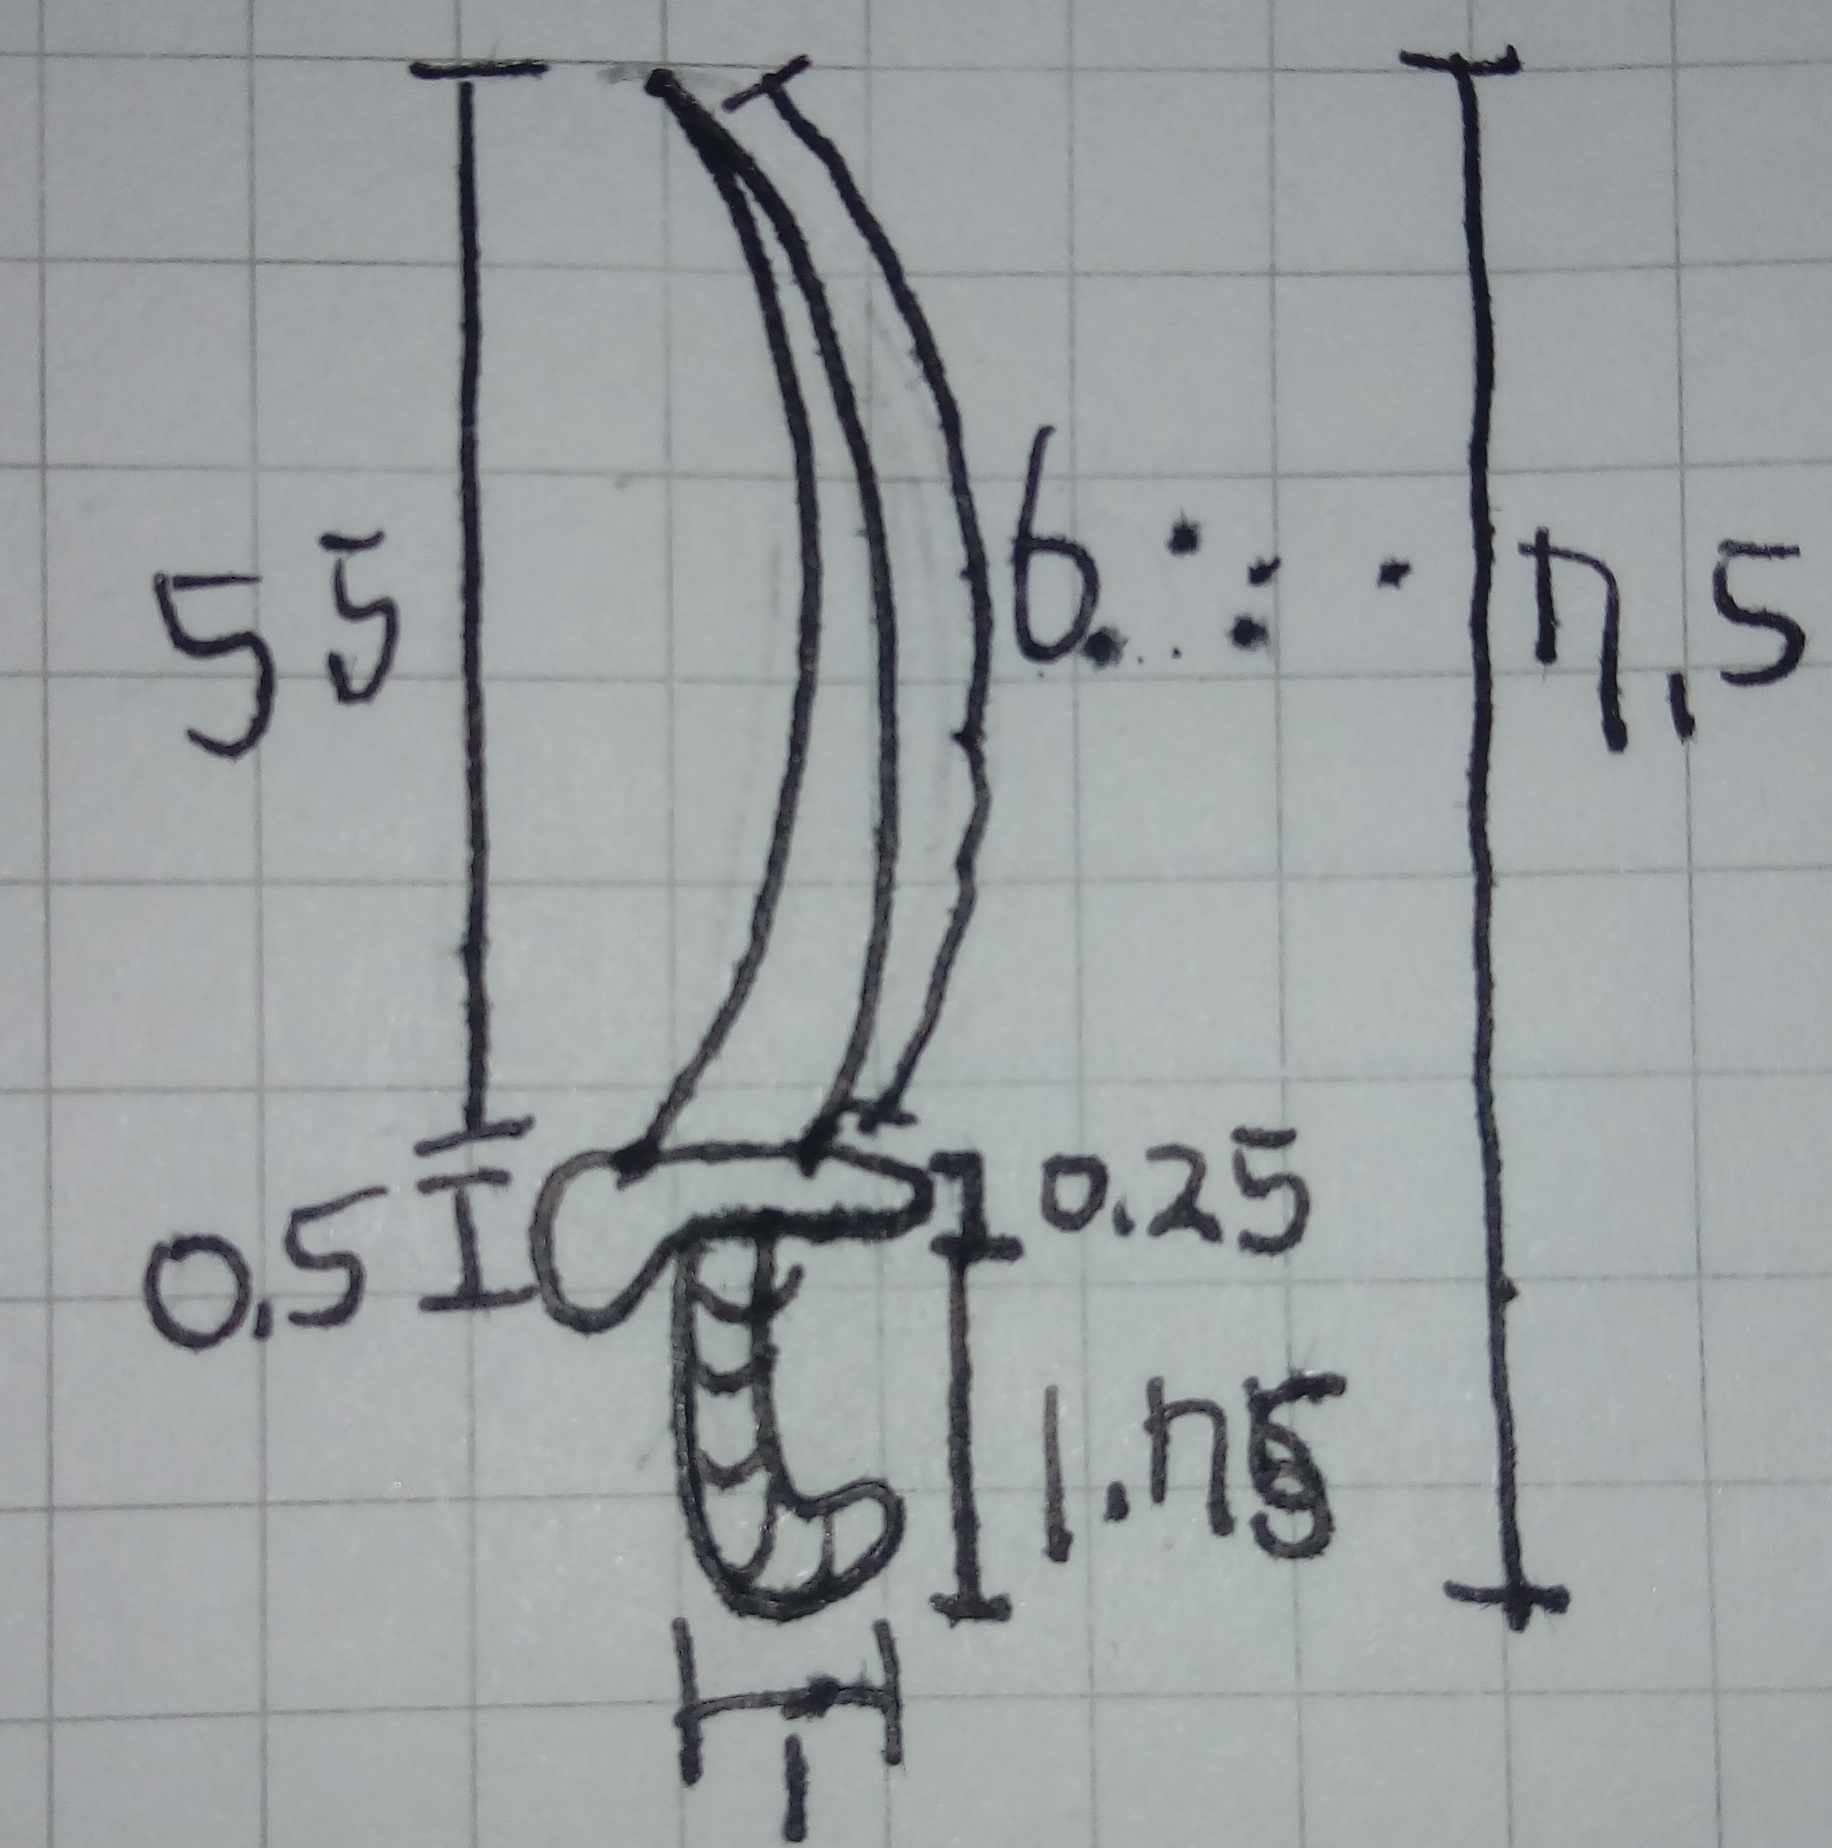 5 5
6
7,5
0.25
0,5
1.75
1